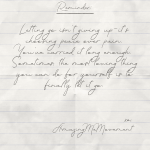 Reminder
Letting go isn't giving up-it's
choosing peace over pain.
You've carried it long enough.
Sometimes the most loving thing
you can do for yourself is to
finally let it go
AmazingMeMovement